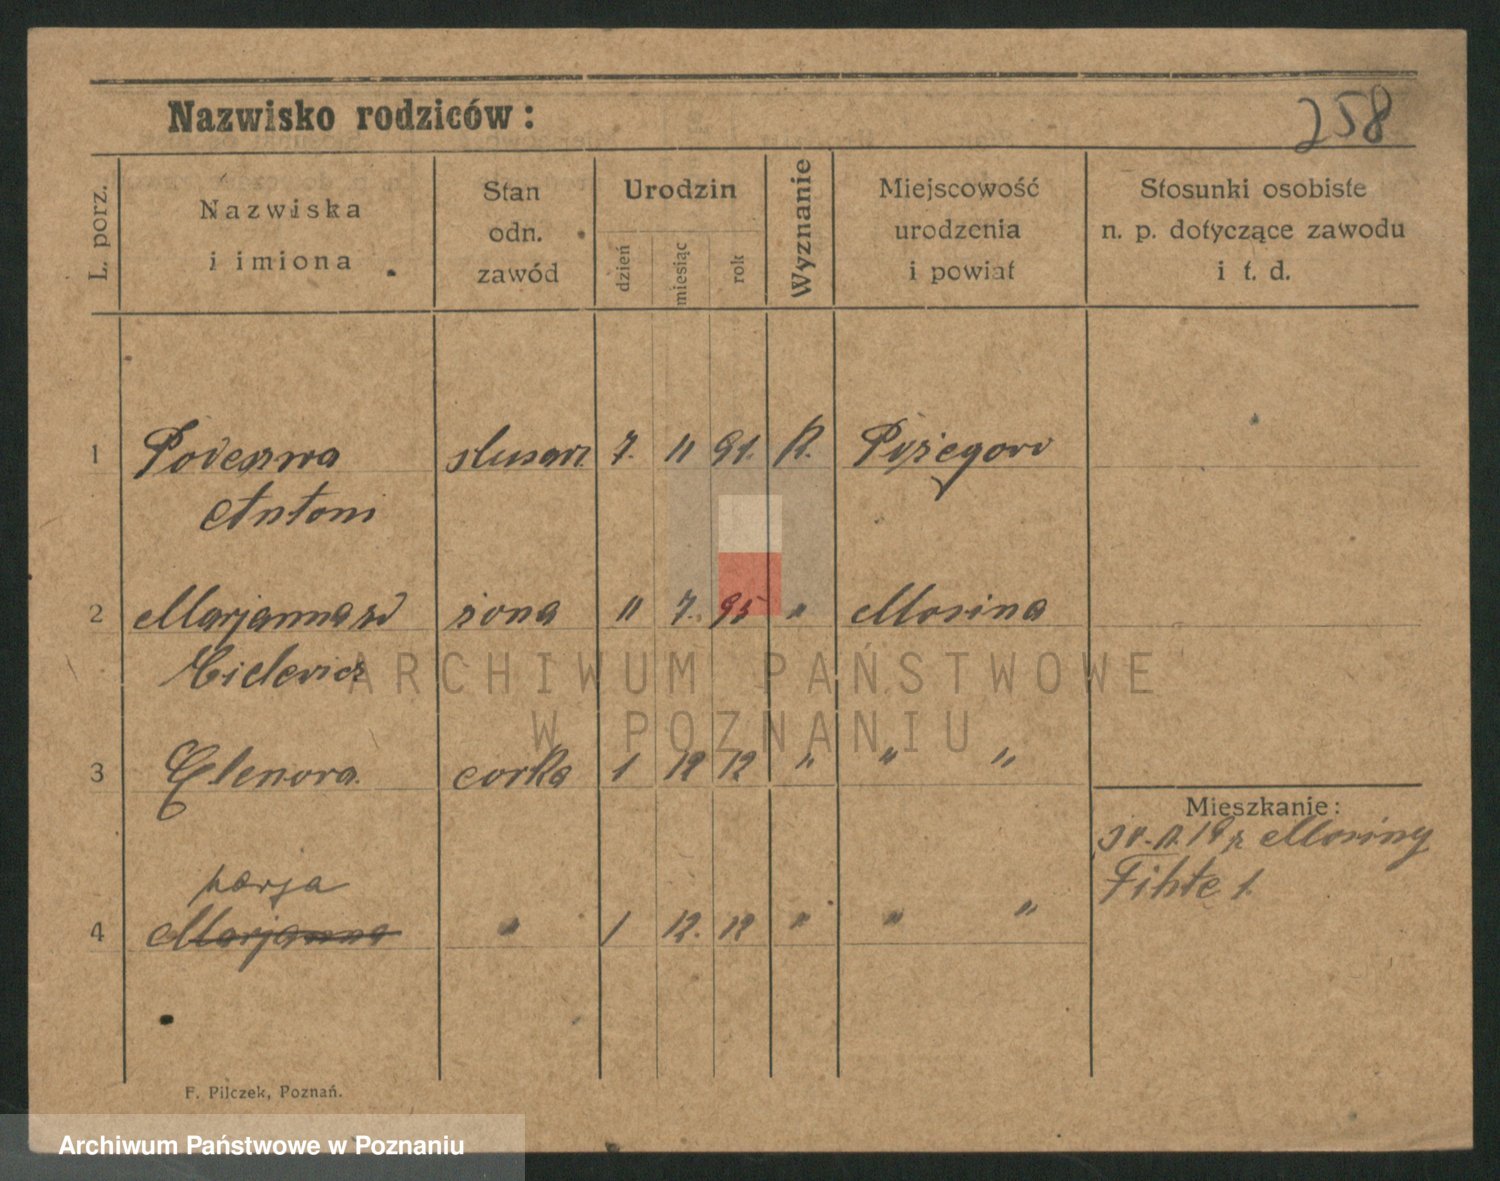 Nazwisko rodziców:
258
L. porz.
Nazwiska
i imiona
Stan
odn.
zawód
Urodzin
dzień
miesiąc
rok
Wyznanie
Miejscowość
urodzenia
i powiat
Stosunki osobiste
n. p. dotyczące zawodu
i t. d.
1 slusarz 7. 11 91. R.
Antoni
2 Marjanna zd żona 11 7. 95 " Mosina
3 Elenora. corka 1 12 12 " " "
Mieszkanie:
z Mosiny
Fihte 1.
marja
4 Marjanna " 1 12. 12 " " "
F. Pilczek, Poznań.
ARCHIWUM PAŃSTWOWE
W POZNANIU
Archiwum Państwowe w Poznaniu